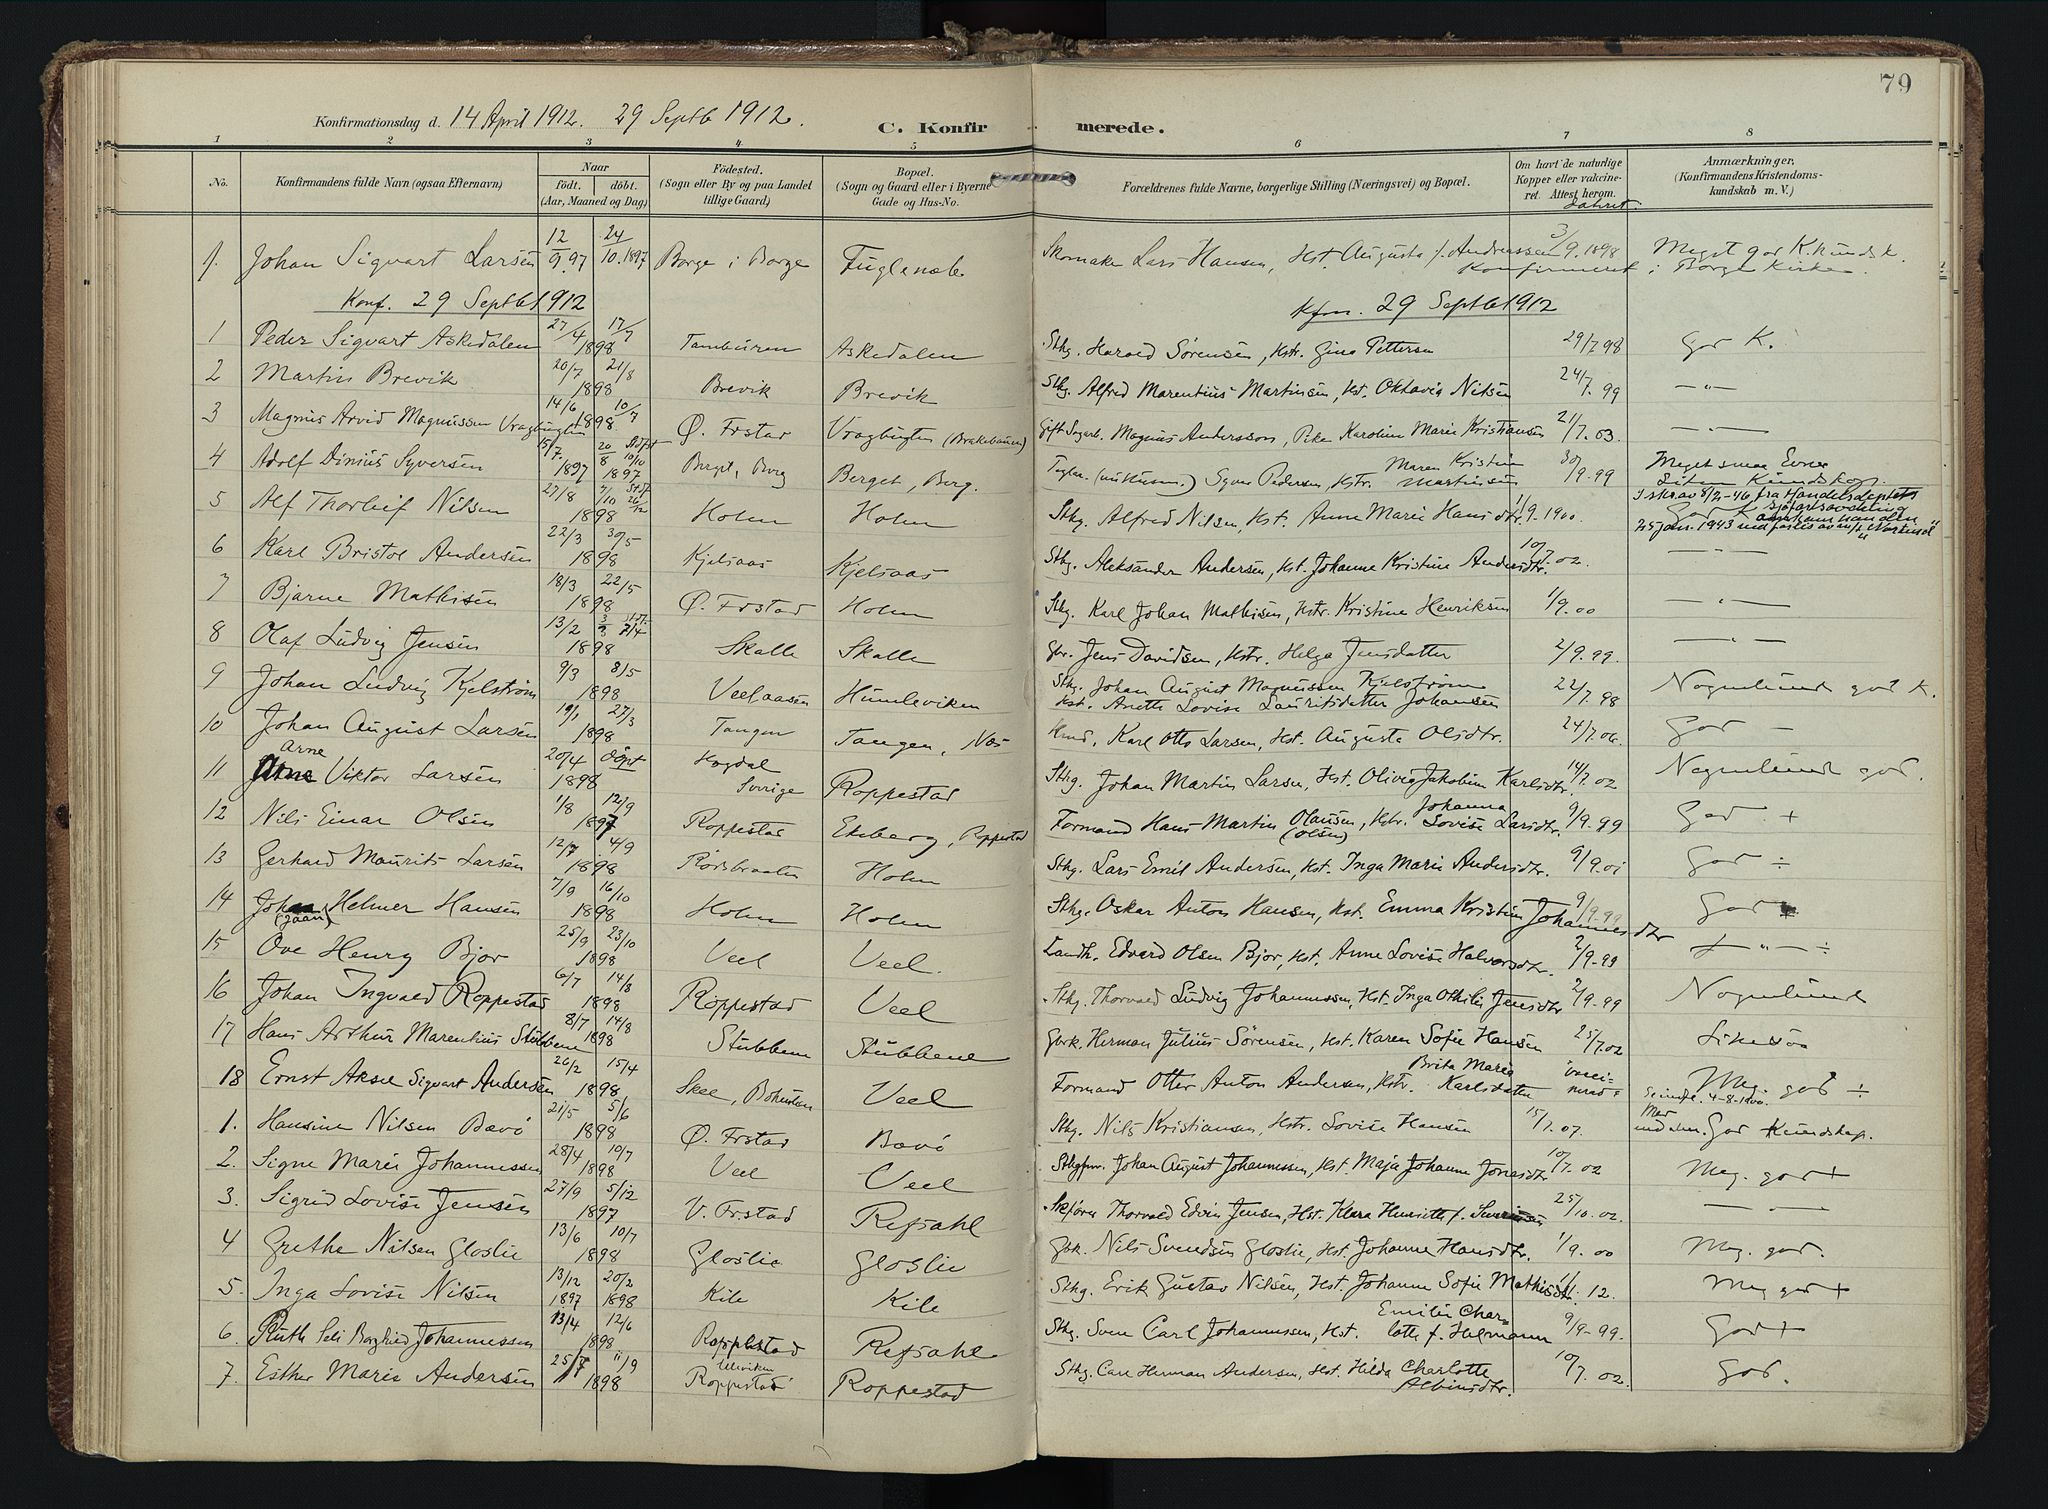 79
Konfirmationsdag d. 14 April 1912. 29 Septb 1912.
C. Konfirmerede.
1 2 3 4 5 6 7 8
No. Konfirmandens fulde Navn (ogsaa Efternavn) Naar födt. döbt. (Aar, Maaned og Dag) Födested. (Sogn eller By og paa Landet tillige Gaard) Bopæl. (Sogn og Gaard eller i Byerne Gade og Hus-No. Forældrenes fulde Navne, borgerlige Stilling (Næringsvei) og Bopæl. Om havt de naturlige Kopper eller vakcineret. Attest herom. Anmærkninger. (Konfirmandens Kristendomskundskab m. V.)
1. Johan Sigvart Larsen 12/9.97 24/10.1897 Borge i Borge Fuglenæb Skomaker Lars Hansen, Hst. Augusta f. Andreassen 3/9.1898 Meget god K.kundsk.
Konfirmeret i Borge Kirke.
Konf. 29 Septb 1912 Kfm. 29 Septb 1912
1 Peder Sigvart Askedalen 27/4 17/7 1898 Tamburen Askedalen Sthg. Harald Sørensen, Hstr. Gina Pettersen 29/7 98 God K.
2 Martin Brevik 20/7 21/8 1898 Brevik Brevik Sthg. Alfred Marentius Martinsen, Hst. Oktavia Nilsen 24/7. 99 — " —
3 Magnus Arvid Magnussen Vragbugten 14/6 10/7 1898 Ø. Frstad Vragbugten (Brakebauen) Gift Sagarb. Magnus Andersson, Pike Karoline Marie Kristiansen 21/7. 03. — " —
4 Adolf Dinius Syversen 15/7. 1897 20/8 1897 Stdf. 10/10 Berget, Berg Berget, Berg. Syver Pedersen, Hstr. Maren Kristine Martinsen 30/9. 99 Meget smaa Evner liten Kundskap.
5 Alf Thorleif Nilsen 27/8 9/10 1898 Stdf. 26/12 Holm Holm Sthg. Alfred Nilsen, Hst. Anne Marie Hansdtr. 1/9-1900 God K
I skr. av 8/2-46 fra Handelsdeptets sjøfartsavdeling
6 Karl Bristol Andersen 22/3 30/5 1898 Kjelsaas Kjelsaas Sthg. Aleksander Andersen, Hst. Johanne Kristine Andersdtr. 10/7. 02. — " —
7 Bjarne Mathisen 18/3 22/5 1898 Ø. Frstad Holm Sthg. Karl Johan Mathisen, Hstr. Kristine Henriksen 1/9. 00 — " —
8 Olaf Ludvig Jensen 13/2 3/8 1898 Stdf. 7/4 Skalle Skalle Gbr. Jens Davidsen, Hstr. Helga Jensdatter 2/9. 99. — " —
9 Johan Ludvig Kjelstrøm 9/3 8/5 1898 Veelaasen Humleviken Sthg. Johan August Magnussen Kjelstrøm Hst. Anette Lovise Lauritsdatter Johansen 22/7. 98 Nogenlunde god K.
10 Johan August Larsen 19/1 27/3 1898 Tangen Tangen, Næs Karl Otto Larsen, Hst. Augusta Olsdtr. 24/7. 06. God —
11 Arne Viktor Larsen 20/4 döpt 1898 Hogdal Sverige Roppestad Sthg. Johan Martin Larsen, Hst. Olivia Jakobine Karlsdtr. 14/7. 02 Nogenlunde god.
12 Nils Einar Olsen 1/8 12/9 1897 Roppestad Ekeberg, Roppestad Formand Hans Martin Olaussen (Olsen), Hstr. Johanna Lovise Larsdtr. 9/9. 99 God +
13 Gerhard Maurits Larsen 12/7 4/9 1898 Rødsbraaten Holm Sthg. Lars Emil Andersen, Hst. Inga Marie Andersdtr. 9/9. 01 God ÷
14 Johan (Johan) Helmer Hansen 7/9 16/10 1898 Holm Holm Sthg. Oskar Anton Hansen, Hst. Emma Kristine Johannesdtr 9/9-99 God
15 Ove Henry Bjor 25/9 23/10 1898 Veel Veel. Landh. Edvard Olsen Bjor, Hst. Anne Lovise Halvorsdtr. 2/9-99 + " — ÷
16 Johan Ingvald Roppestad 6/7 14/8 1898 Roppestad Veel Sthg. Thorvald Ludvig Johannessen, Hst. Inga Othilie Jensdtr 2/9-99 Nogenlunde
17 Hans Arthur Marentius Stubbene 8/7 14/8 1898 Stubbene Stubbene Gbrk. Herman Julius Sørensen, Hst. Karen Sofie Hansen 25/7. 02 Likesaa
18 Ernst Aksel Sigvart Andersen 26/2 15/4 1898 Skee, Bohuslen Veel Formand Otter Anton Andersen, Hstr. Brita Maria Karlsdatter Meg. god ÷
1. Hansine Nilsen Bævø 21/5 5/6 1898 Ø. Frstad Bævø Sthg. Nils Kristiansen, Hstr. Lovise Hansen 15/7. 07. God Kundskap.
2. Signe Marie Johannessen 28/4 10/7 1898 Veel Veel Johan August Johannessen, Hst. Maja Johanne Jonasdtr 10/7. 02 Meg. god +
3. Sigrid Lovise Jensen 27/9 5/12 1897 V. Frstad Refsahl Skfører Thorvald Edvin Jensen, Hst. Klara Henriette f. Severinsen 25/10. 02. — " —
4 Grethe Nilsen Gloslie 13/6 10/7 1898 Gloslie Gloslie Gbk. Nils Svendsen Gloslie, Hst. Johanne Hansdtr. 1/9. 00 Meg. god.
5. Inga Lovise Nilsen 13/12 1897 20/2 1898 Kile Kile Sthg. Erik Gustav Nilsen, Hst. Johanne Sofie Mathisdtr. 12. Meg god +
6. Ruth Seli Borghild Johannessen 13/4 12/6 1898 Roppestad Refsahl Sthg. Sven Carl Johannessen, Hst. Emilie Charlotte f. Hermann 9/9-99. God +
7. Esther Marie Andersen 25/7 11/9 1898 Ulleviken Roppestad Roppestad Sthg. Carl Herman Andersen, Hst. Hilda Charlotte Albinsdtr. 10/7. 02. God.